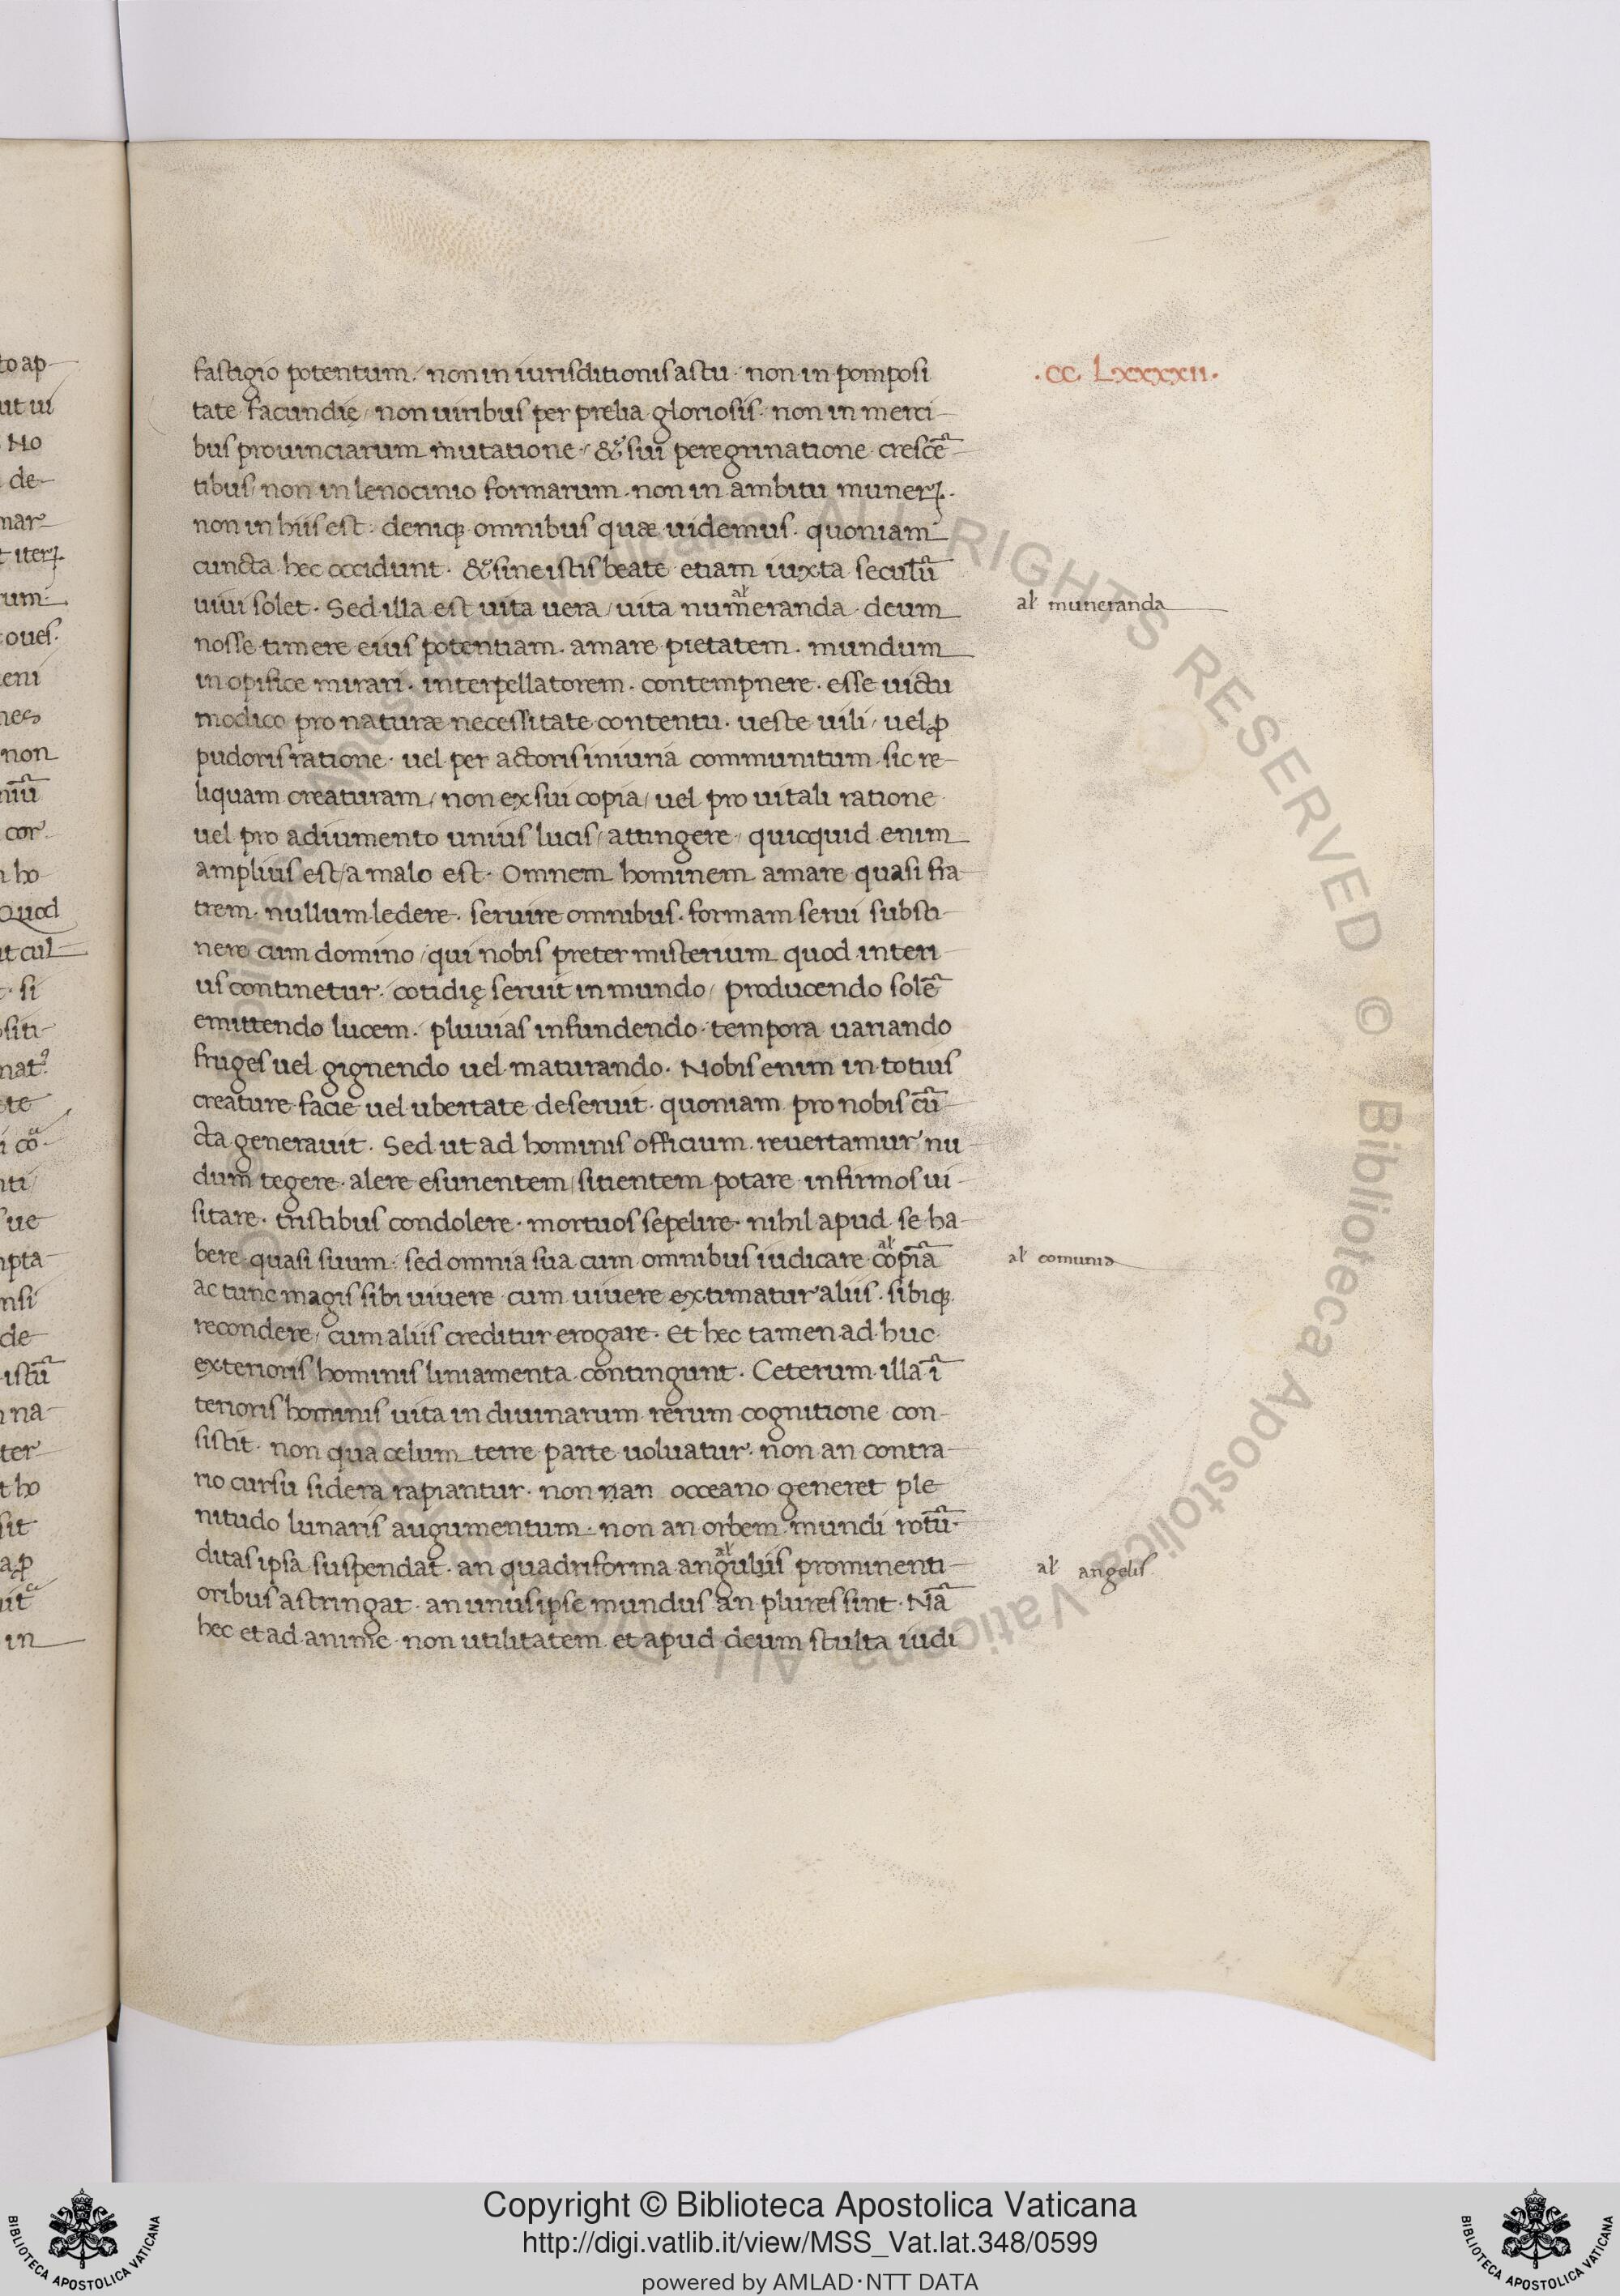 .CC. LXXXXII.
fastigio potentum / non in iurisditionis astu · non in pomposi
tate facundię / non uiribus per prelia gloriosis · non in merci-
bus prouinciarum mutatione · & sui peregrinatione crescē-
tibus / non in lenocinio formarum · non in ambitu munerꝝ.
non in hiis est · deniqꝫ omnibus quæ uidemus · quoniam
cuncta hec occidunt · & sine istis beate etiam iuxta seculū
uiui solet · Sed illa est uita uera / uita numeranda deum
al muneranda
nosse timere eius potentiam · amare pietatem · mundum
in opifice mirari · interpellatorem · contempnere · esse uictu
modico pro naturæ necessitate contentu · ueste uili / uel ꝓ
pudoris ratione · uel per actoris iniuria communitum · sic re-
liquam creaturam / non ex sui copia / uel pro uitali ratione
uel pro adiumento unius lucis / attingere / quicquid enim
amplius est / a malo est · Omnem hominem amare quasi fra-
trem · nullum ledere · seruire omnibus · formam serui substi-
nere cum domino / qui nobis preter misterium quod interi-
us continetur · cotidię seruit in mundo / producendo solē
emittendo lucem · pluuias infundendo · tempora uariando
fruges uel gignendo uel maturando · Nobis enim in totius
creature facie uel ubertate deseruit · quoniam pro nobis cū-
cta generauit · Sed ut ad hominis officium reuertamur nu-
dum tegere · alere esurientem / sitientem potare infirmos ui-
sitare · tristibus condolere · mortuos sepelire · nihil apud se ha-
bere quasi suum · sed omnia sua cum omnibus iudicare copiā
al comunia
ac tunc magis sibi uiuere cum uiuere extimatur aliis · sibiqꝫ
recondere / cum aliis creditur erogare · Et hec tamen ad huc
exterioris hominis liniamenta contingunt · Ceterum illa ī
terioris hominis uita in diuinarum rerum cognitione con-
sistit · non qua celum terre parte uoluatur · non an contra-
rio cursu sidera rapiantur · non nan occeano generet ple
nitudo lunaris augumentum · non an orbem mundi rotū-
ditas ipsa suspendat · an quadriforma anguliis prominenti-
al angelis
oribus astringat · an unus ipse mundus an plures sint · Nā
hec et ad anime non utilitatem et apud deum stulta iudi
Copyright © Biblioteca Apostolica Vaticana
http://digi.vatlib.it/view/MSS_Vat.lat.348/0599
powered by AMLAD·NTT DATA